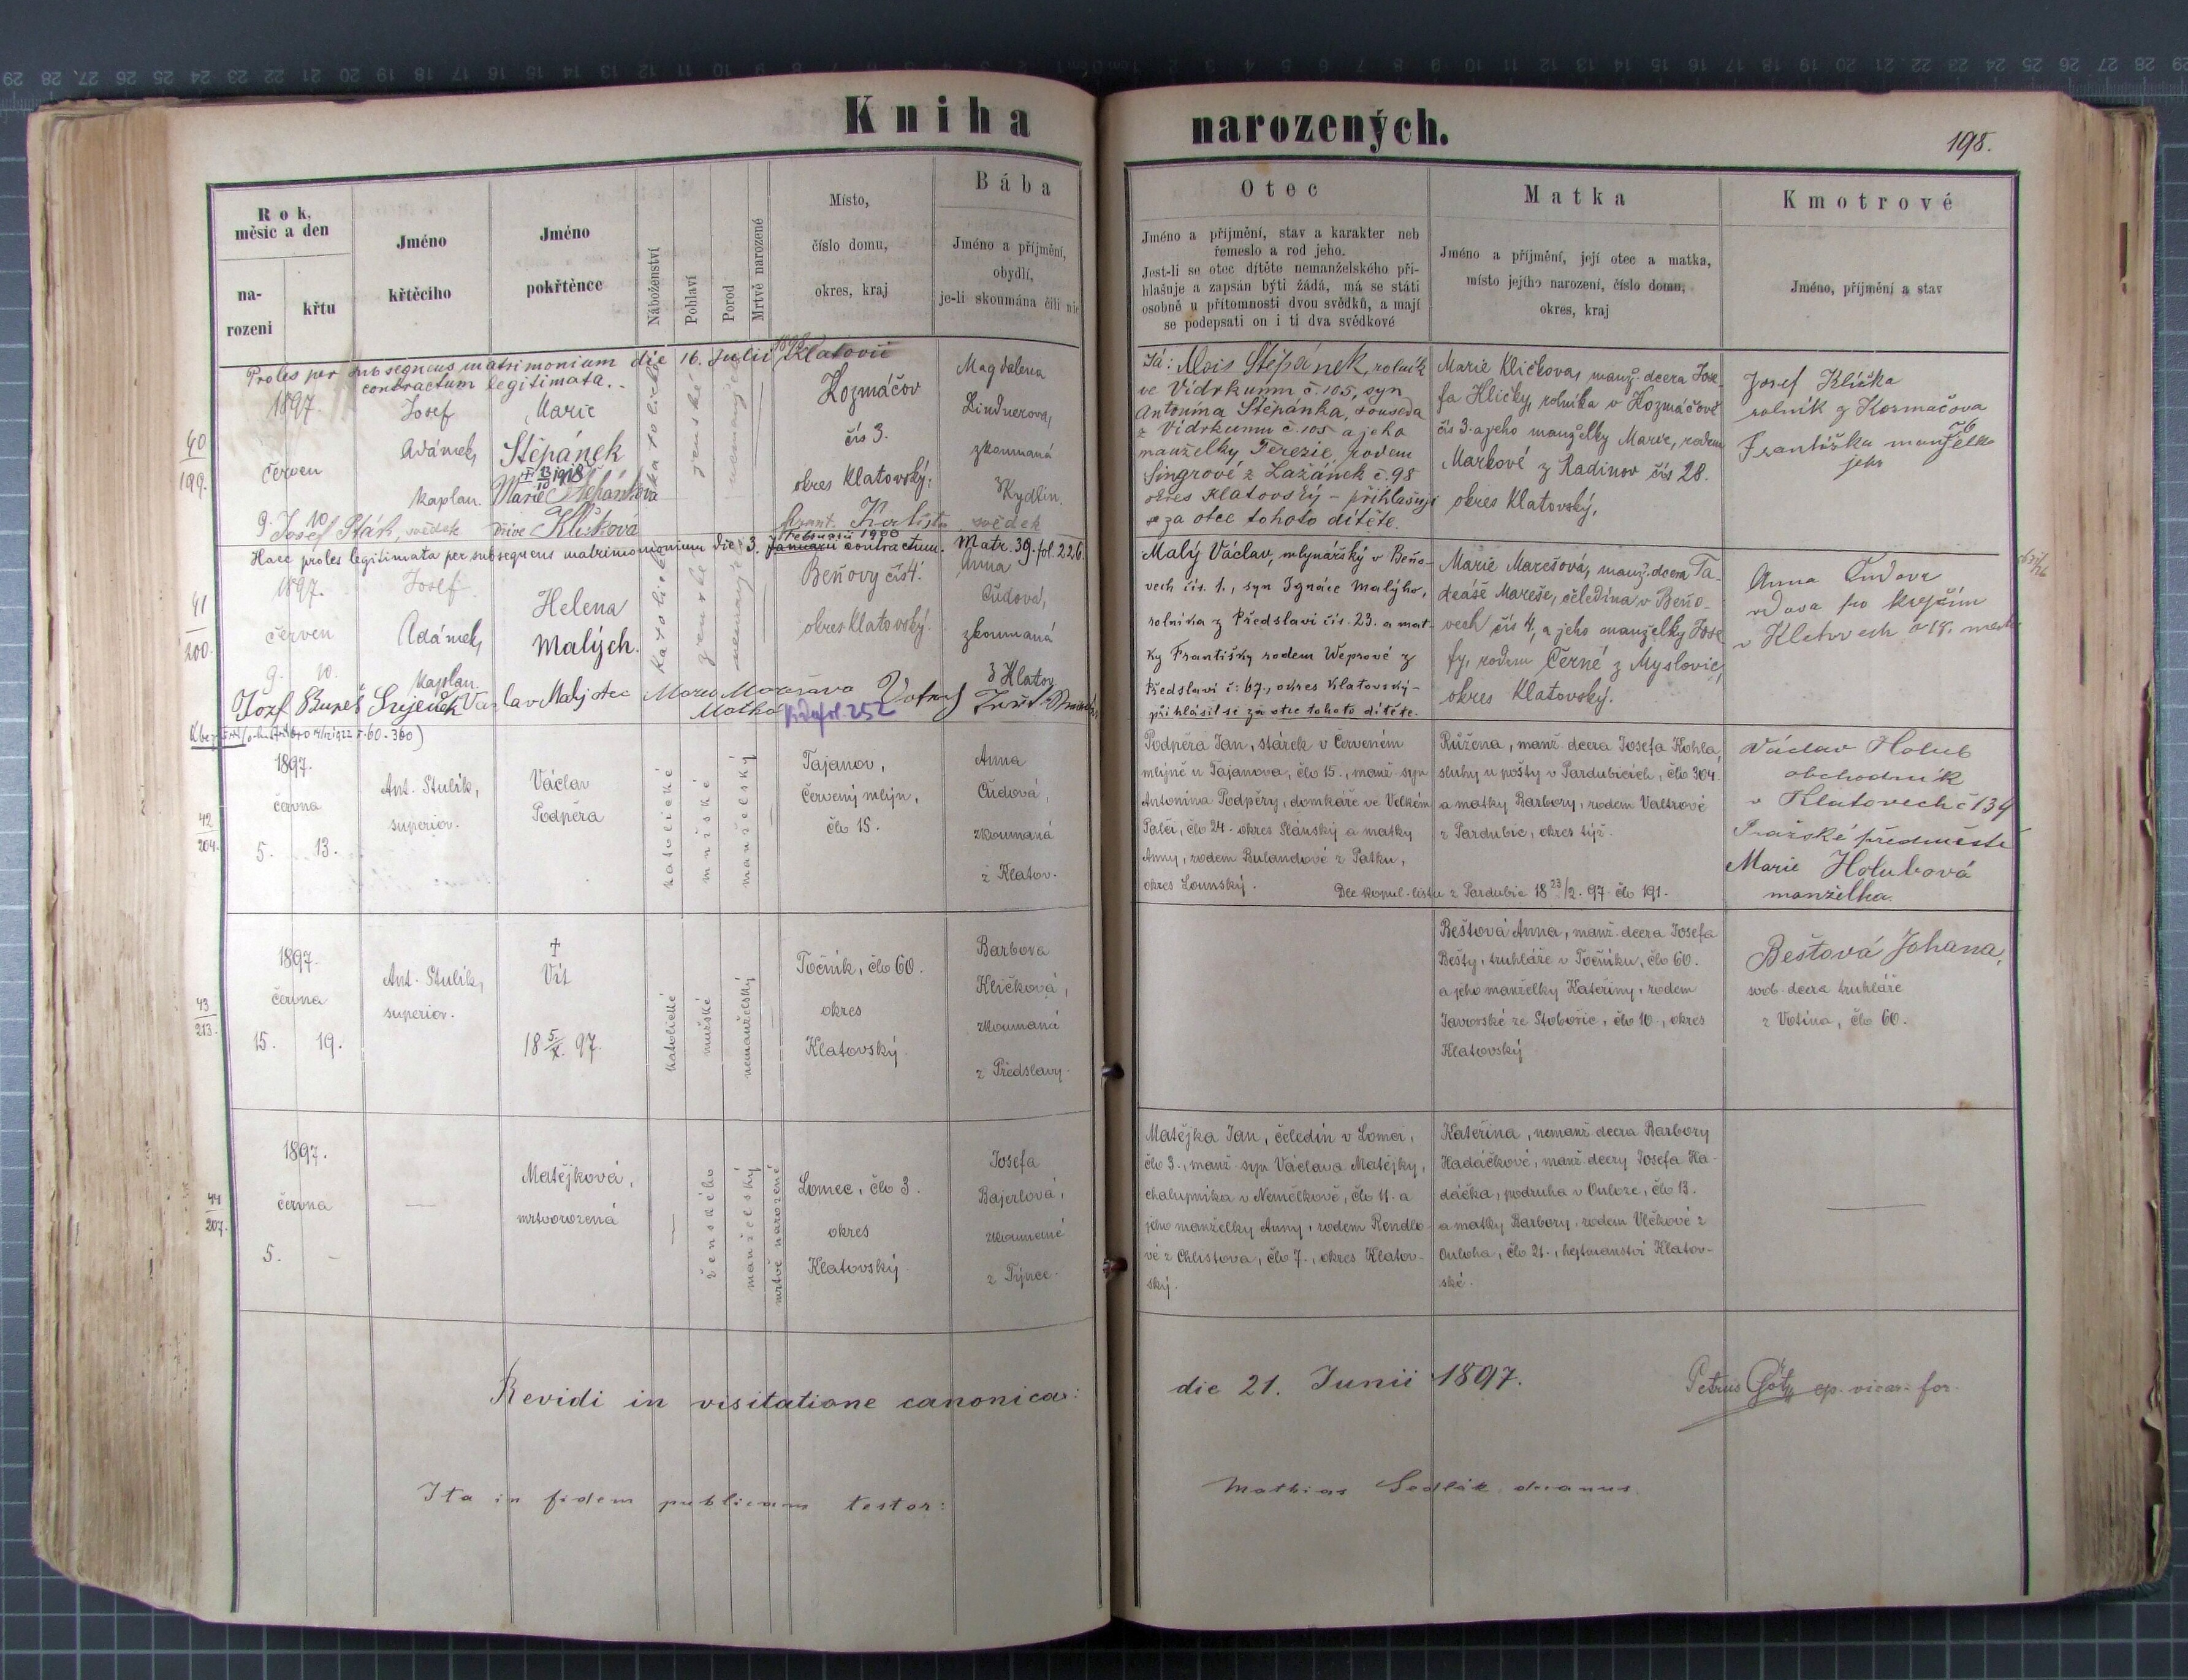 Kniha narozených.
198.
Rok, měsíc a den
narození
křtu
Jméno křtěcího
Jméno pokřtěnce
Náboženství
Pohlaví
Porod
Mrtvě narozené
Místo,
číslo domu,
okres, kraj
Bába
Jméno a příjmění,
obydlí,
je-li skoumána čili nic
Otec
Jméno a příjmění, stav a karakter neb
řemeslo a rod jeho.
Jest-li se otec dítěte nemanželského při-
hlašuje a zapsán býti žádá, má se státi
osobně u přítomnosti dvou svědků, a mají
se podepsati on i ti dva svědkové
Matka
Jméno a příjmění, její otec a matka,
místo jejího narození, číslo domu,
okres, kraj
Kmotrové
Jméno, příjmění a stav
Proles per subsequens matrimonium die 16. Julii Klatovii
contractum legitimata.
40
199.
1897.
červen
9. 10
Josef
Adámek,
kaplan.
Marie
Štěpánek
Marie Štěpánková
dříve Kličková
katolické
ženské
Kozmáčov
čís 3.
okres Klatovský:
Magdalena
Lindnerova,
zkoumaná
z Kydlin.
Josef Stárk, svědek
svědek
Já: Alois Štěpánek, rolník
ve Vídrkumu č. 105, syn
Antonína Štěpánka, souseda
z Vídrkumu č. 105 a jeho
manželky Terezie, rodem
Singrové z Lažánek č. 98
okres Klatovský – přihlašuji
se za otce tohoto dítěte.
Marie Kličkova, manž. dcera Jose-
fa Kličky, rolníka v Kozmáčově
čís 3. a jeho manželky Marie, rodem
Markové z Radinov čís 28.
okres Klatovský,
Josef Klička
rolník z Kozmačova
Františka manželka
jeho
Haec proles legitimata per subsequens matrimonium die 3. Februarii 1900 contractum. Matr. 39. fol. 226.
41
200.
1897.
červen
9. 10.
Josef
Adámek,
kaplan.
Helena
Malých.
katolické
ženské
Beňovy čís 4.
okres Klatovský.
Anna
Čudová,
zkoumaná
z Klatov
fol. 252
Malý Václav, mlynářský v Beňo-
vech čís. 1., syn Ignáce Malýho,
rolníka z Předslavi čís. 23. a mat-
ky Františky rodem Weprové z
Předslavi č: 67., okres Klatovský –
přihlásil se za otce tohoto dítěte.
Marie Marešová, manž. dcera Ta-
deáše Mareše, čeledína v Beňo-
vech čís 4, a jeho manželky Jose-
fy, rodem Černé z Myslovic,
okres Klatovský.
Anna Čudova
vdova po krejčím
42
204.
1897.
června
5. 13.
Ant. Stulík,
superior.
Václav
Podpěra
katolické
mužské
manželský
Tajanov,
Červený mlýn,
člo 15.
Anna
Čudová,
zkoumaná
z Klatov.
Podpěra Jan, stárek v Červeném
mlýně u Tajanova, člo 15., manž. syn
Antonína Podpěry, domkáře ve Velkém
Palči, člo 24. okres Slánský a matky
Anny, rodem Bulandové z Patku,
okres Lounský.
Růžena, manž. dcera Josefa Kohla,
sluhy u pošty v Pardubicích, člo 304.
a matky Barbory, rodem Valtrové
z Pardubic, okres týž.
Dle kopul-listu z Pardubic 18 23/2. 97. člo 191.
Václav Holub
obchodník
v Klatovech č 134
Pražské předměstí
Marie Holubová
manželka.
43
213.
1897.
června
15. 19.
Ant. Stulík,
superior.
†
Vít
18 5/X. 97.
katolické
mužské
nemanželský
Točník, člo 60.
okres
Klatovský.
Barbora
Kličková,
zkoumaná
z Předslavy.
Beštová Anna, manž. dcera Josefa
Bešty, truhláře v Točníku, člo 60.
a jeho manželky Kateřiny, rodem
Javorské ze Stobořic, člo 10., okres
Klatovský
Beštová Johana,
svob. dcera truhláře
člo 60.
44
207.
1897.
června
5. –
Matějková,
mrtvorozená
ženského
manželský
mrtvě narozené
Lomec, člo 3.
okres
Klatovský.
Josefa
Bajerlová,
zkoumaná
z Týnce.
Matějka Jan, čeledín v Lomci,
člo 3., manž. syn Václava Matějky,
chalupníka v Nemělkově, člo 11. a
jeho manželky Anny, rodem Rendlo-
vé z Chlistova, člo 7., okres Klatov-
ský.
Kateřina, nemanž. dcera Barbory
Hadáčkové, manž. dcery Josefa Ha-
dáčka, podruha v Ouloze, člo 13.
a matky Barbory, rodem Vlčkové z
Ouloha, člo 21., hejtmanství Klatov-
ské.
Revidi in visitatione canonica: die 21. Junii 1897.
Petrus Götz ep. vicar. for.
Ita in fidem publicam testor: Mathias Sedlák decanus.